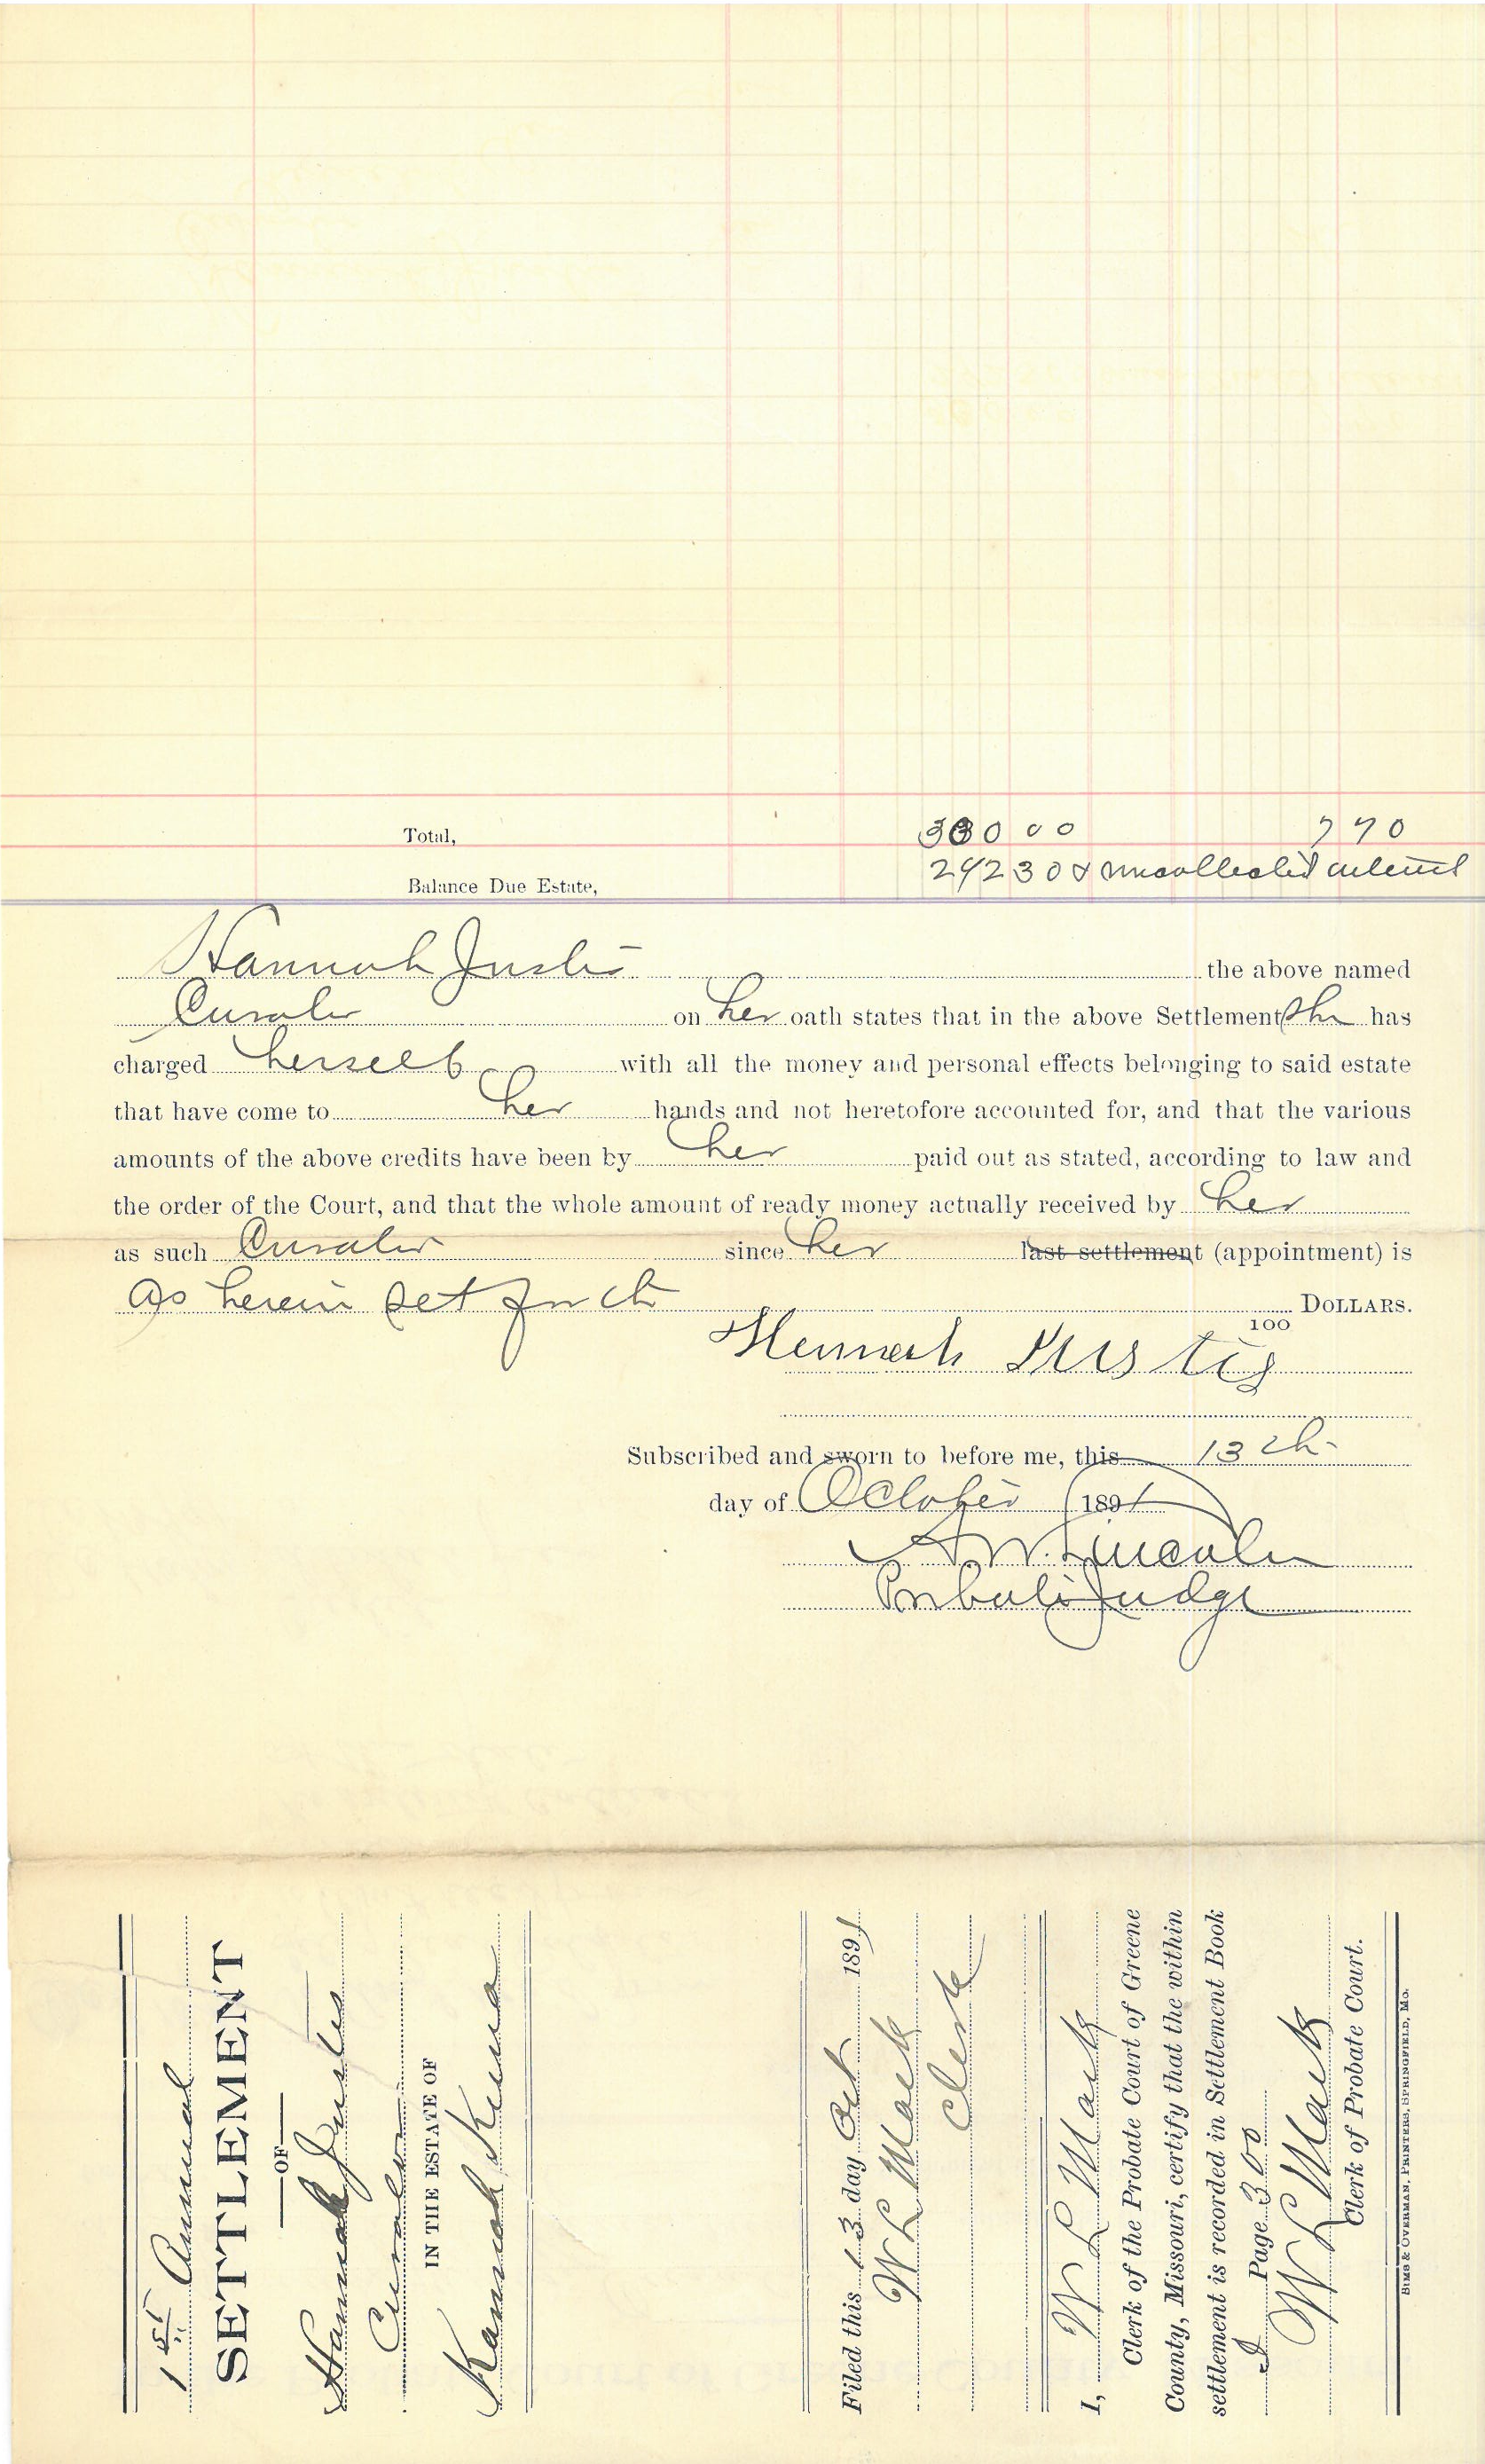 Total, 330 00 7 70
Balance Due Estate, 242 30 & uncollected interest
Hannah Justis the above named
Curator on her oath states that in the above Settlement she has
charged herself with all the money and personal effects belonging to said estate
that have come to her hands and not heretofore accounted for, and that the various
amounts of the above credits have been by her paid out as stated, according to law and
the order of the Court, and that the whole amount of ready money actually received by her
as such Curator since her last settlement (appointment) is
as herein set forth DOLLARS.
100
Hennah Justis
Subscribed and sworn to before me, this 13th
day of October 1891
A. W. Lincoln
Probate Judge
1st Annual
SETTLEMENT
OF
Hannah Justis
Curator
IN THE ESTATE OF
Filed this 13 day Oct 1891
W L Mack
Clerk
I, W L Mack
Clerk of the Probate Court of Greene
County, Missouri, certify that the within
settlement is recorded in Settlement Book
I Page 300
W L Mack
Clerk of Probate Court.
SIMS & OVERMAN, PRINTERS, SPRINGFIELD, MO.